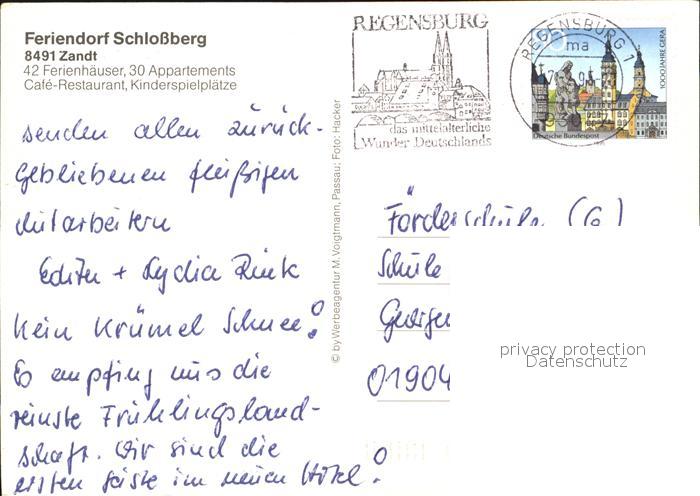 Feriendorf Schloßberg
8491 Zandt
42 Ferienhäuser, 30 Appartements
Café-Restaurant, Kinderspielplätze
senden allen zurück-
gebliebenen fleißigen
Mitarbeitern
Edith + Lydia Rink
Kein Krümel Schnee!
Es empfing uns die
reinste Frühlingsland-
schaft. Wir sind die
ersten Gäste im neuen Hotel!
© by Werbeagentur M. Voigtmann, Passau; Foto: Hacker
REGENSBURG
das mittelalterliche
Wunder Deutschlands
REGENSBURG 1
ma
1000 JAHRE GERA
Deutsche Bundespost
Förderschule (G)
Schule
01904
privacy protection
Datenschutz